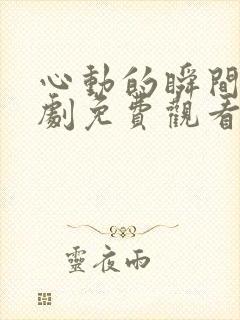 心動的瞬間
劇免費觀看
靈夜雨